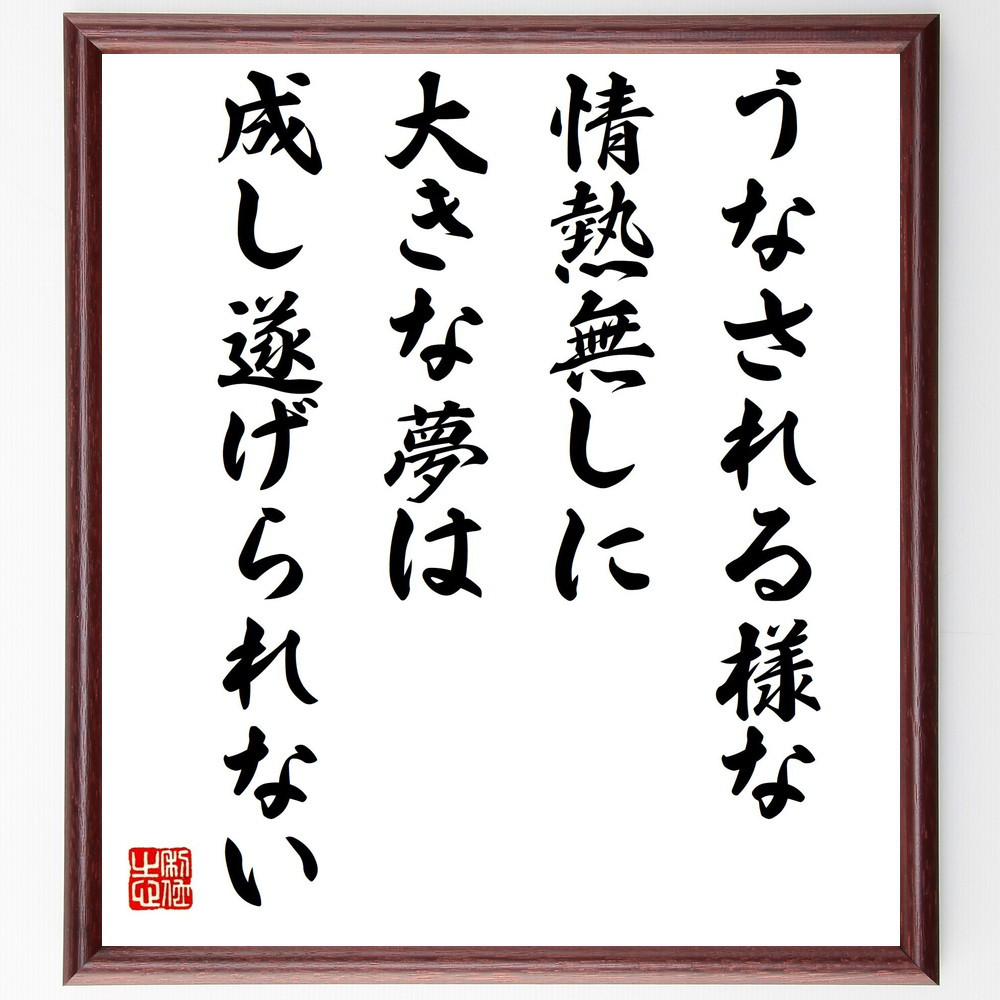 うなされる様な
情熱無しに
大きな夢は
成し遂げられない